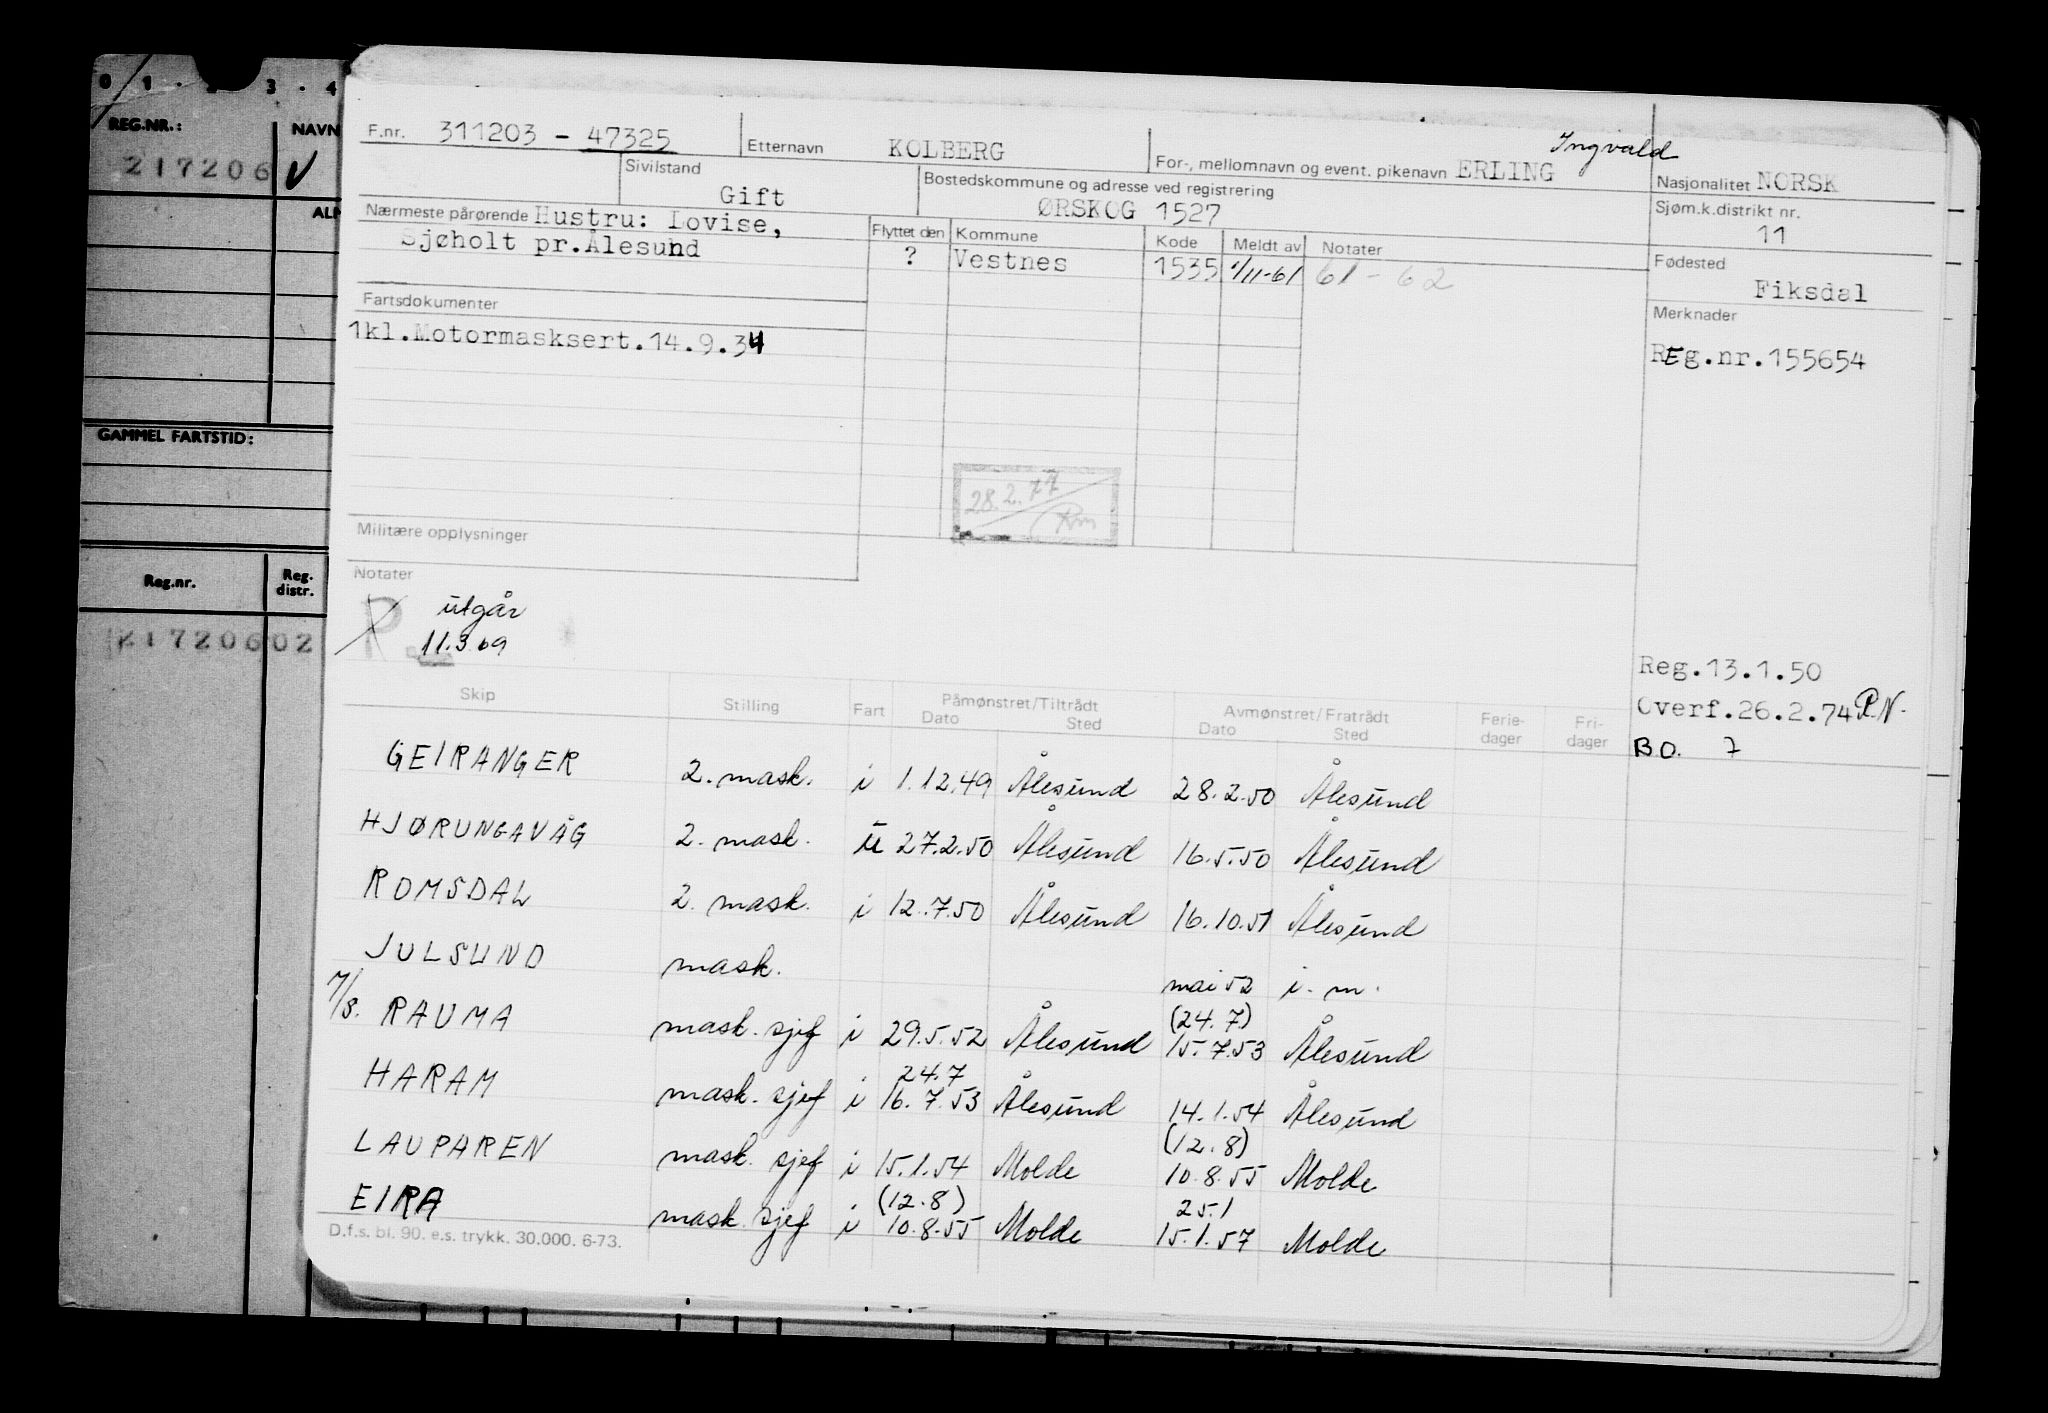 0 1 · 2 3 · 4
REG.NR.: NAVN
217206 V
GAMMEL FARTSTID:
Reg.nr. Reg. distr.
21720602
F.nr. 311203 - 47325 Etternavn KOLBERG For-, mellomnavn og event. pikenavn ERLING Ingvald
Nasjonalitet NORSK
Sivilstand Gift
Bostedskommune og adresse ved registrering
ØRSKOG 1527
Sjøm.k.distrikt nr.
11
Nærmeste pårørende Hustru: Lovise,
Sjøholt pr.Ålesund
Flyttet den Kommune Kode Meldt av Notater
? Vestnes 1535 1/11-61 61-62
Fødested
Fiksdal
Fartsdokumenter
1kl.Motormasksert.14.9.34
Merknader
REg.nr.155654
28.2.77
Rm
Militære opplysninger
Notater
P utgår
11.3.69
Reg.13.1.50
Overf.26.2.74 P.N.
BO. 7
Skip Stilling Fart Påmønstret/Tiltrådt Avmønstret/Fratrådt Ferie- Fri-
Dato Sted Dato Sted dager dager
GEIRANGER 2. mask. i 1.12.49 Ålesund 28.2.50 Ålesund
HJØRUNGAVÅG 2. mask. u 27.2.50 Ålesund 16.5.50 Ålesund
ROMSDAL 2. mask. i 12.7.50 Ålesund 16.10.51 Ålesund
JULSUND mask. mai 52 i. m.
(24.7)
M/S. RAUMA mask. sjef i 29.5.52 Ålesund 15.7.53 Ålesund
24.7
HARAM mask. sjef i 16.7.53 Ålesund 14.1.54 Ålesund
(12.8)
LAUPAREN mask. sjef i 15.1.54 Molde 10.8.55 Molde
(12.8) 25.1
EIRA mask. sjef i 10.8.55 Molde 15.1.57 Molde
D.f.s. bl. 90. e.s. trykk. 30.000. 6-73.